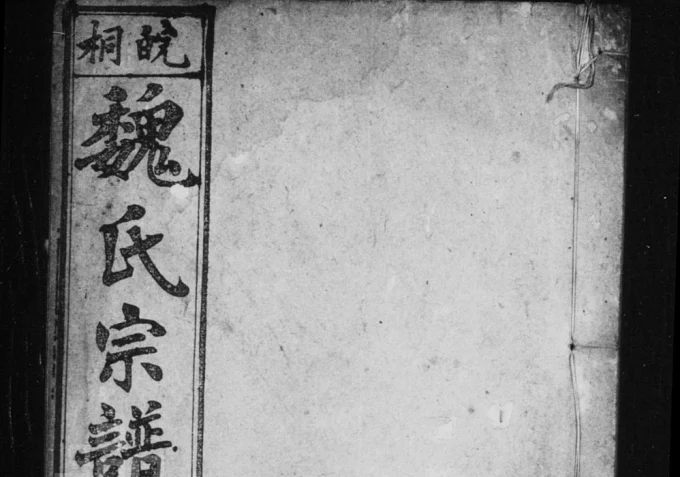 皖桐
魏氏宗譜